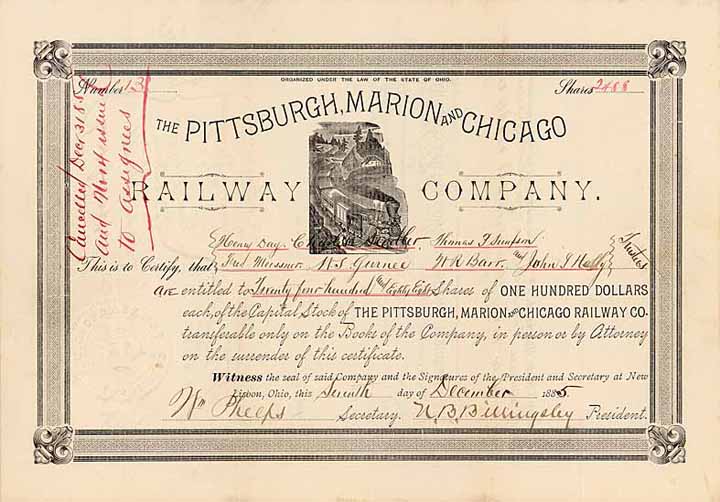 ORGANIZED UNDER THE LAW OF THE STATE OF OHIO.
Number 13
Shares 2488
THE PITTSBURGH, MARION AND CHICAGO
RAILWAY COMPANY.
Henry Day Thomas F Simpson
This is to Certify, that Fred Meissner N. S. Gurnee W R Barr and John J Trustees
are entitled to Twenty four hundred and Eighty Eight Shares of ONE HUNDRED DOLLARS
each, of the Capital Stock of THE PITTSBURGH, MARION AND CHICAGO RAILWAY CO.
transferable only on the Books of the Company, in person or by Attorney
on the surrender of this certificate.
Witness the seal of said Company and the Signatures of the President and Secretary at New
Lisbon, Ohio, this Seventh day of December 1885
Wm Phelps Secretary. N. B. Billingsley President.
Cancelled Dec 31 85
and issue
to assignees